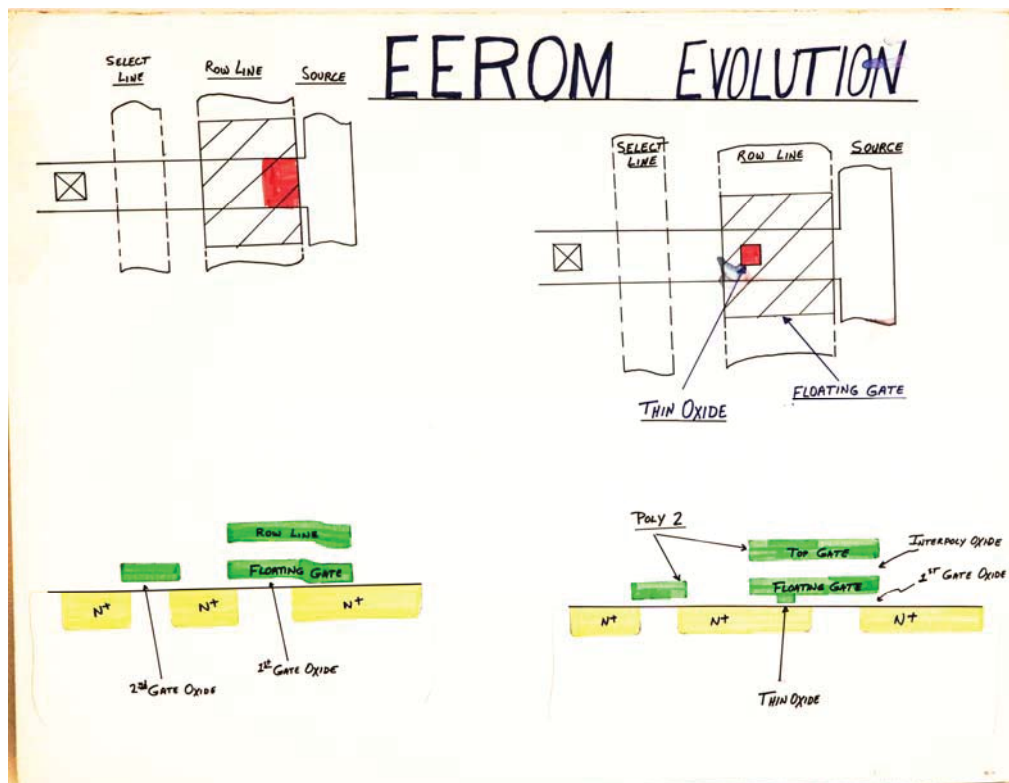 EEROM EVOLUTION
SELECT
LINE
ROW LINE
SOURCE
SELECT
LINE
ROW LINE
SOURCE
THIN OXIDE
FLOATING GATE
ROW LINE
FLOATING GATE
N+
N+
N+
2nd GATE OXIDE
1st GATE OXIDE
POLY 2
TOP GATE
FLOATING GATE
INTERPOLY OXIDE
1ST GATE OXIDE
N+
N+
N+
THIN OXIDE